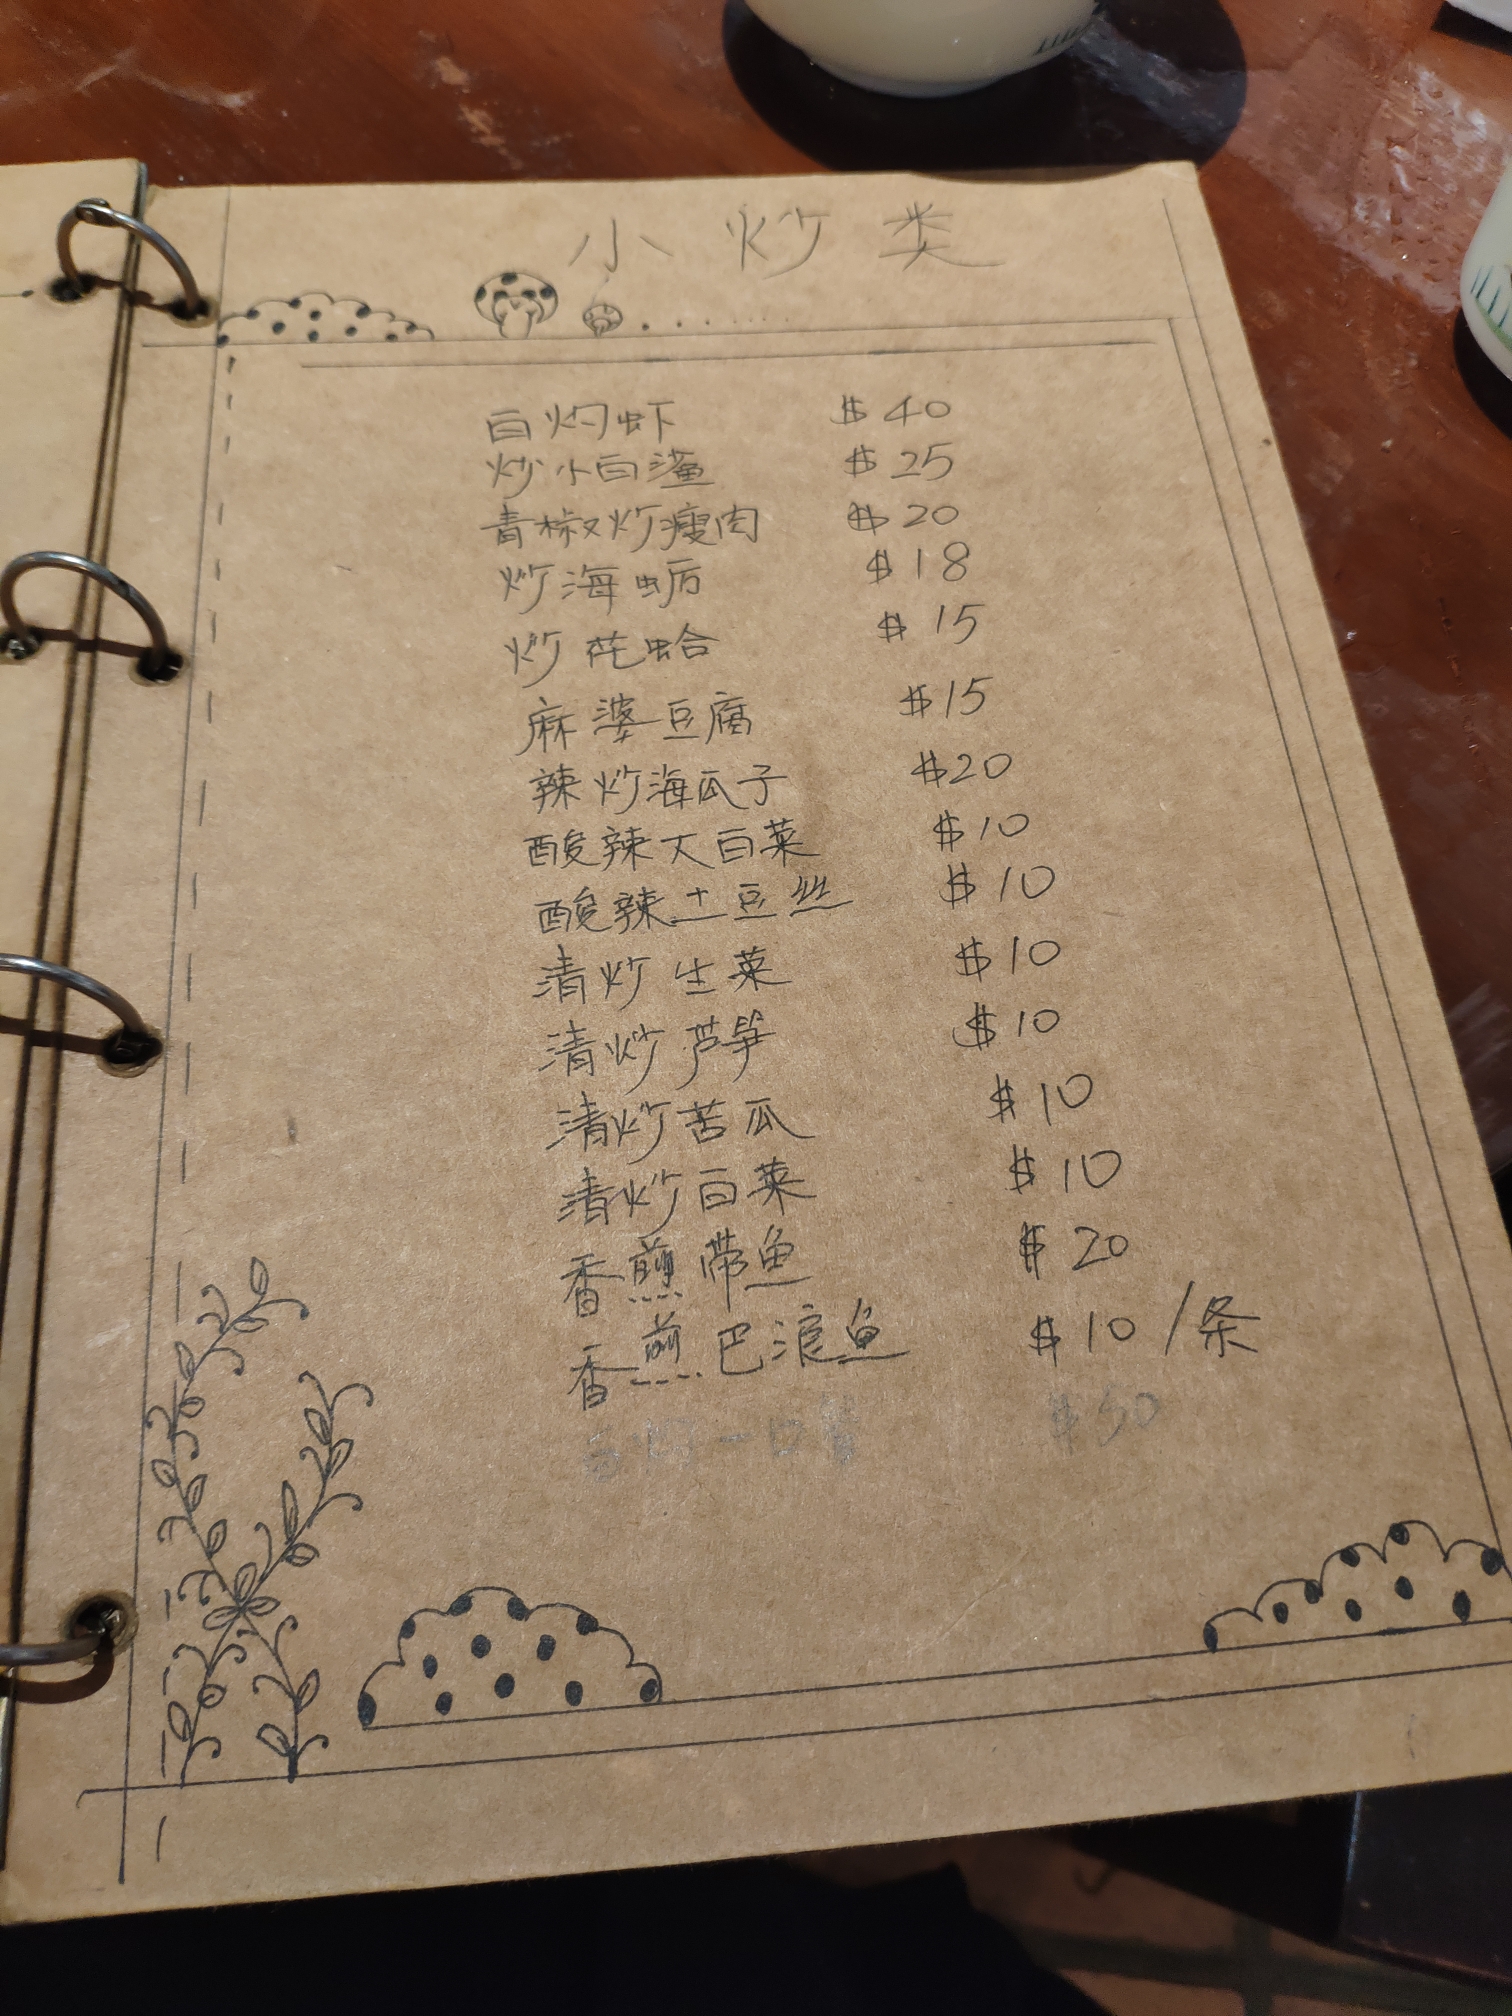 小炒类
白灼虾 $40
炒小白鲨 $25
青椒炒瘦肉 $20
炒海蛎 $18
炒花蛤 $15
麻婆豆腐 $15
辣炒海瓜子 $20
酸辣大白菜 $10
酸辣土豆丝 $10
清炒生菜 $10
清炒芦笋 $10
清炒苦瓜 $10
清炒白菜 $10
香煎带鱼 $20
香煎巴浪鱼 $10/条